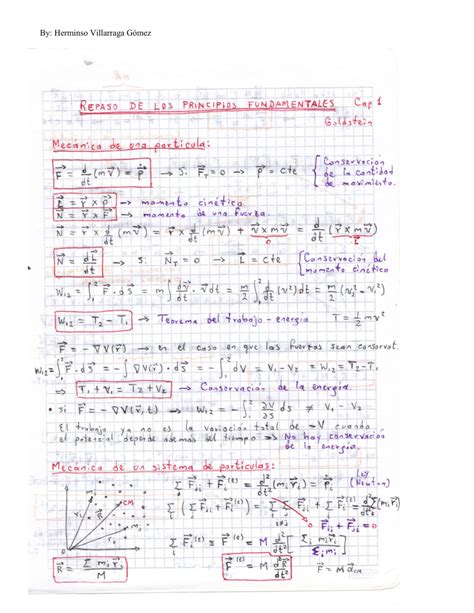 By: Herminso Villarraga Gómez
REPASO DE LOS PRINCIPIOS FUNDAMENTALES Cap 1
Goldstein
Mecánica de una partícula:
F⃗ = d/dt (m v⃗) = ṗ⃗ → Si F⃗_T = 0 → p⃗ = cte { Conservación de la cantidad de movimiento.
L⃗ = r⃗ x p⃗ → momento cinético
N⃗ = r⃗ x F⃗ → momento de una fuerza.
N⃗ = r⃗ x d/dt (m v⃗) = r⃗ x d/dt (m v⃗) + v⃗ x m v⃗ = d/dt (r⃗ x m v⃗)
0 L⃗
N⃗ = dL⃗/dt → Si N_T = 0 → L⃗ = cte { Conservación del momento cinético
W₁₂ = ∫₁² F⃗ · dS⃗ = m ∫ dv⃗/dt · v⃗ dt = m/2 ∫₁² d/dt (v²) dt = m/2 (v₂² - v₁²)
W₁₂ = T₂ - T₁ → Teorema del trabajo - energía T = ½ m v²
F⃗ = - ∇V(r⃗) → en el caso en que las fuerzas sean conservat.
W₁₂ = ∫₁² F⃗ · dS⃗ = - ∫ ∇V(r⃗) · dS⃗ = - ∫₁² dV = V₁ - V₂ = W₁₂ = T₂ - T₁
⇒ T₁ + V₁ = T₂ + V₂ → Conservación de la energía.
• Si F⃗ = - ∇V(r⃗, t) → W₁₂ = - ∫₁² ∂V/∂S dS ≠ V₁ - V₂
El trabajo ya no es la variación total de -V cuando
el potencial depende además del tiempo ⇒ No hay conservación
de la energía.
Mecánica de un sistema de partículas:
Σ F⃗ji + F⃗i⁽ᵉ⁾ = d²/dt² (mi r⃗i) (Ley Newton)
mi CM ri R⃗
Σ (Σ F⃗ji + F⃗i⁽ᵉ⁾) = Σ F⃗ji + Σ F⃗i⁽ᵉ⁾ = d²/dt² Σ (mi r⃗i)
i≠j 0 F⃗ij + F⃗ji = 0
Σ F⃗i⁽ᵉ⁾ = F⃗⁽ᵉ⁾ = M d²/dt² [Σ mi r⃗i / Σ mi]
R⃗ = Σ mi r⃗i / M
F⃗⁽ᵉ⁾ = M d²R⃗/dt² F⃗ = M a⃗CM